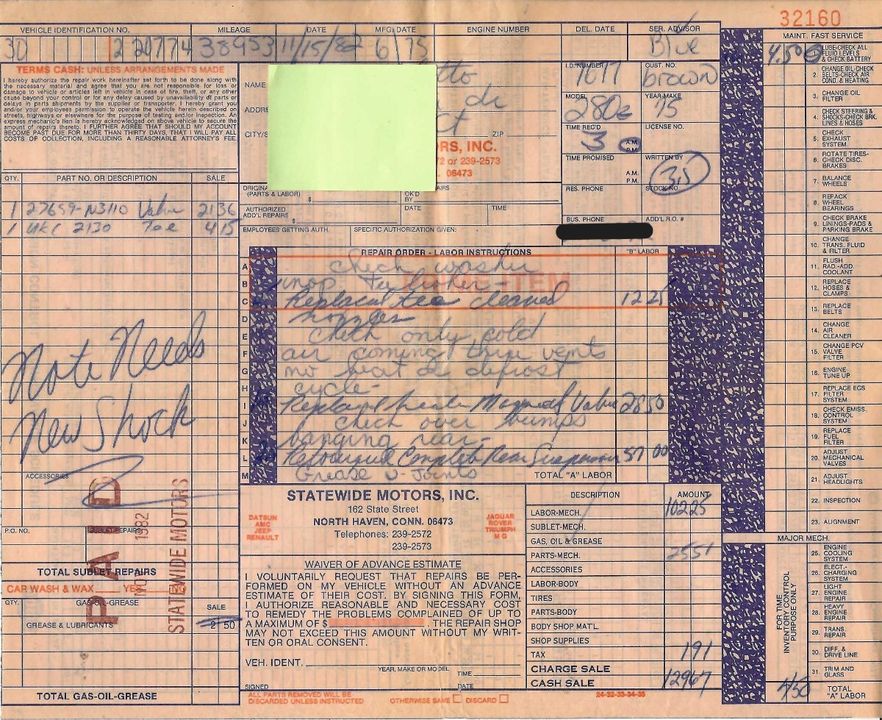 32160
VEHICLE IDENTIFICATION NO.
MILEAGE
DATE
MFG. DATE
ENGINE NUMBER
DEL. DATE
SER. ADVISOR
MAINT. FAST SERVICE
3D 2 20774 38953 11/15/82 6/75 Blue
4.50
TERMS CASH: UNLESS ARRANGEMENTS MADE
I hereby authorize the repair work hereinafter set forth to be done along with
the necessary material and agree that you are not responsible for loss or
damage to vehicle or articles left in vehicle in case of fire, theft, or any other
cause beyond your control or for any delay caused by unavailability of parts or
delays in parts shipments by the supplier or transporter. I hereby grant you
and/or your employees permission to operate the vehicle herein described on
streets, highways or elsewhere for the purpose of testing and/or inspection. An
express mechanic's lien is hereby acknowledged on above vehicle to secure the
amount of repairs thereto. I FURTHER AGREE THAT SHOULD MY ACCOUNT
BECOME PAST DUE FOR MORE THAN THIRTY DAYS, THAT I WILL PAY ALL
COSTS OF COLLECTION, INCLUDING A REASONABLE ATTORNEY'S FEE.
NAME
tto
ADDRE
dr
CITY/S
ct
ZIP
RS, INC.
2 or 239-2573
. 06473
I.D. NUMBER
1677
CUST. NO.
brown
MODEL
280Z
YEAR-MAKE
75
TIME REC'D
3
A.M.
LICENSE NO.
TIME PROMISED
A.M.
P.M.
WRITTEN BY
35
STOCK NO.
RES. PHONE
BUS. PHONE
ADD'L R.O. #
ORIGINA
(PARTS & LABOR)
$
AIRS
OK'D
BY
AUTHORIZED
ADD'L REPAIRS
$
DATE
TIME
EMPLOYEES GETTING AUTH.
SPECIFIC AUTHORIZATION GIVEN:
QTY.
PART NO. OR DESCRIPTION
SALE
1 27659-N3110 Valve 2136
1 URC 2130 Tee 415
Note Needs
New Shock
ACCESSORIES
P.O. NO.
SUBLET-REPAIRS
PAID
1982
STATEWIDE MOTORS
TOTAL SUBLET-REPAIRS
CAR WASH & WAX
YES
QTY.
GAS-OIL-GREASE
SALE
GREASE & LUBRICANTS
2 50
TOTAL GAS-OIL-GREASE
REPAIR ORDER - LABOR INSTRUCTIONS
"B" LABOR
A check washer
B inop
C Replaced tee cleaned 1225
D nozzles
E Check only cold
F air coming thru vents
G no heat or defrost
H cycle-
I Replaced heater Magnet Valve 2850
J check over bumps
K banging rear-
L Complete Rear 57 00
M Grease U-Joints
TOTAL "A" LABOR
STATEWIDE MOTORS, INC.
162 State Street
NORTH HAVEN, CONN. 06473
Telephones: 239-2572
239-2573
DATSUN
AMC
JEEP
RENAULT
JAGUAR
ROVER
TRIUMPH
M G
WAIVER OF ADVANCE ESTIMATE
I VOLUNTARILY REQUEST THAT REPAIRS BE PER-
FORMED ON MY VEHICLE WITHOUT AN ADVANCE
ESTIMATE OF THEIR COST. BY SIGNING THIS FORM,
I AUTHORIZE REASONABLE AND NECESSARY COST
TO REMEDY THE PROBLEMS COMPLAINED OF UP TO
A MAXIMUM OF $ THE REPAIR SHOP
MAY NOT EXCEED THIS AMOUNT WITHOUT MY WRIT-
TEN OR ORAL CONSENT.
VEH. IDENT.
YEAR, MAKE OR MODEL
TIME
SIGNED
DATE
ALL PARTS REMOVED WILL BE
DISCARDED UNLESS INSTRUCTED
OTHERWISE SAVE DISCARD
24-32-33-34-35
DESCRIPTION
AMOUNT
LABOR-MECH. 10225
SUBLET-MECH.
GAS, OIL & GREASE
PARTS-MECH. 2551
ACCESSORIES
LABOR-BODY
TIRES
PARTS-BODY
BODY SHOP MAT'L.
SHOP SUPPLIES
TAX 191
CHARGE SALE
CASH SALE 12967
1. LUBE-CHECK ALL
FLUID LEVELS
& CHECK BATTERY
2. CHANGE OIL-CHECK
BELTS-CHECK AIR
COND. & HEATING
3. CHANGE OIL
FILTER
4. CHECK STEERING &
SHOCKS-CHECK BRK.
LINES & HOSES
5. CHECK
EXHAUST
SYSTEM
6. ROTATE TIRES-
CHECK DISC.
BRAKES
7. BALANCE
WHEELS
8. REPACK
WHEEL
BEARINGS
9. CHECK BRAKE
LININGS-PADS &
PARKING BRAKE
10. CHANGE
TRANS. FLUID
& FILTER
11. FLUSH
RAD.-ADD
COOLANT
12. REPLACE
HOSES &
CLAMPS
13. REPLACE
BELTS
14. CHANGE
AIR
CLEANER
15. CHANGE PCV
VALVE
FILTER
16. ENGINE
TUNE UP
17. REPLACE EGS
FILTER
SYSTEM
18. CHECK EMISS.
CONTROL
SYSTEM
19. REPLACE
FUEL
FILTER
20. ADJUST
MECHANICAL
VALVES
21. ADJUST
HEADLIGHTS
22. INSPECTION
23. ALIGNMENT
MAJOR MECH.
25. ENGINE
COOLING
SYSTEM
26. ELECT.-
CHARGING
SYSTEM
27. LIGHT
ENGINE
REPAIR
28. HEAVY
ENGINE
REPAIR
29. TRANS.
REPAIR
30. DIFF. &
DRIVE LINE
31. TRIM AND
GLASS
FOR TIME
INVENTORY CONTROL
PURPOSE ONLY
4.50
TOTAL
"A" LABOR